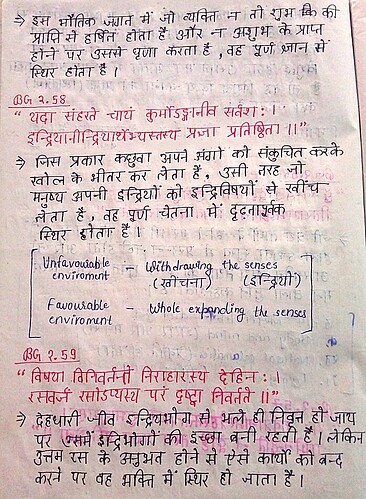 ⇒ इस भौतिक जगत में जो व्यक्ति न तो शुभ की
प्राप्ति से हर्षित होता है और न अशुभ के प्राप्त
होने पर उससे घृणा करता है, वह पूर्ण ज्ञान में
स्थिर होता है।
BG 2.58
"यदा संहरते चायं कुर्मोऽङ्गानीव सर्वशः।
इन्द्रियानीन्द्रियार्थेभ्यस्तस्य प्रज्ञा प्रतिष्ठिता॥"
⇒ जिस प्रकार कछुवा अपने अंगो को संकुचित करके
खोल के भीतर कर लेता है, उसी तरह जो
मनुष्य अपनी इन्द्रियों को इन्द्रिविषयों से खींच
लेता है, वह पूर्ण चेतना में दृढ़तापूर्वक
स्थिर होता है।
Unfavourable – Withdrawing the senses
enviroment (खींचना) (इन्द्रियों)
Favourable – Whole expanding the senses
enviroment
BG 2.59
"विषया विनिवर्तन्ते निराहारस्य देहिनः।
रसवर्जं रसोऽप्यस्य परं दृष्ट्वा निवर्तते॥"
⇒ देहधारी जीव इन्द्रियभोग से भले ही निवृत हो जाय
पर उसमें इन्द्रिभोगों की इच्छा बनी रहती है। लेकिन
उत्तम रस के अनुभव होने से ऐसे कार्यों को बन्द
करने पर वह भक्ति में स्थिर हो जाता है।